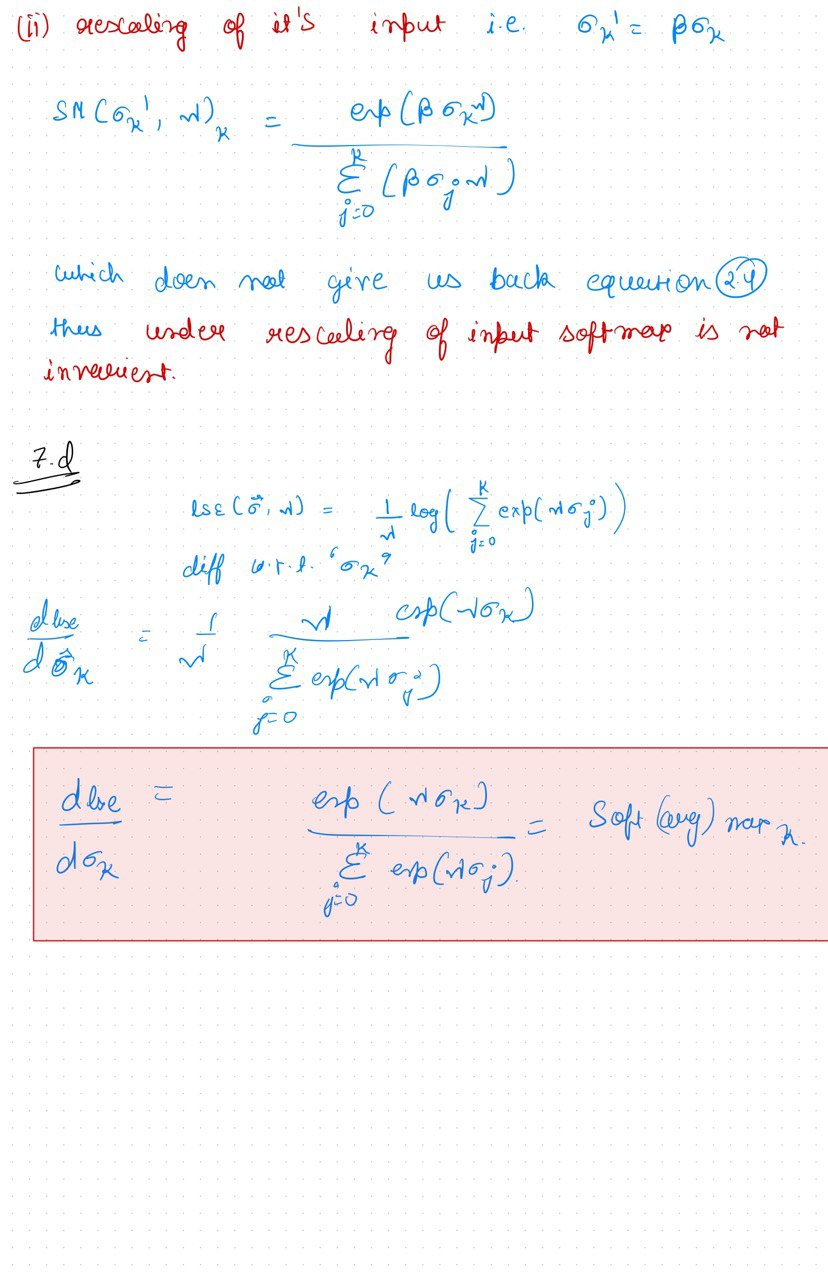 (ii) rescaling of it's input i.e. σₖ' = βσₖ
SM(σₖ', ν)ₖ = exp(βσₖν) / Σ_{j=0}^{K} (βσⱼν)
which does not give us back equation 2.4
thus under rescaling of input softmax is not
invarient.
7.d
lse(σ⃗, ν) = 1/ν log( Σ_{j=0}^{K} exp(νσⱼ) )
diff w.r.t. 'σₖ'
dlse/dσₖ = 1/ν ν exp(νσₖ) / Σ_{j=0}^{K} exp(νσⱼ)
dlse/dσₖ = exp(νσₖ) / Σ_{j=0}^{K} exp(νσⱼ) = Soft(arg)maxₖ.